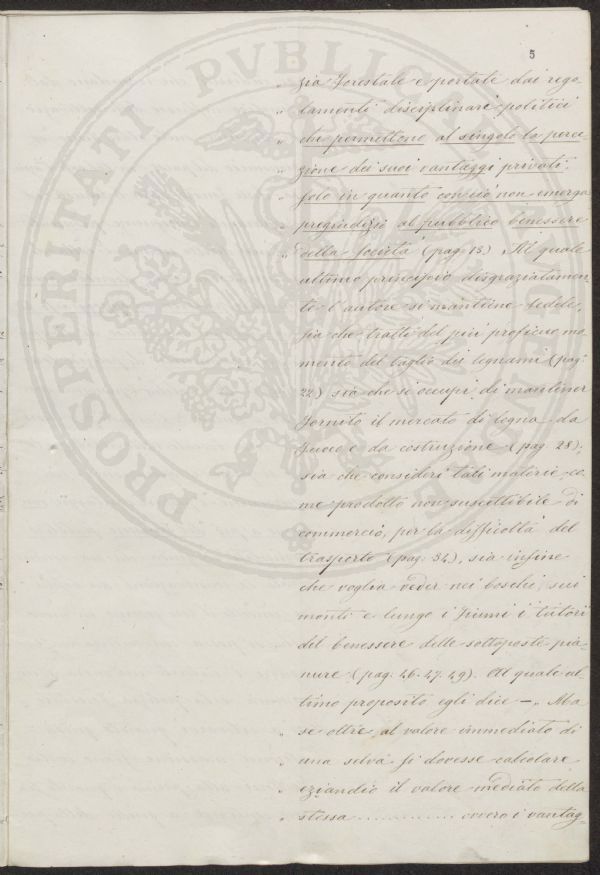 5
„ zia forestale e portate dai rego-
„ lamenti disciplinari politici
„ che permettono al singolo la perce-
„ zione dei suoi vantaggi privati
„ solo in quanto con ciò non emerga
„ pregiudizio al pubblico benessere
„ della società (pag. 15.) Al quale
ultimo principio disgraziatamen-
te l'autore si mantiene fedele,
sia che tratti del più proficuo mo-
mento del taglio dei legnami (pag.
22) sia che si occupi di mantener
fornito il mercato di legna da
fuoco e da costruzione (pag. 28),
sia che consideri tali materie co-
me prodotto non suscettibile di
commercio, per la difficoltà del
trasporto (pag. 34), sia infine
che voglia veder nei boschi sui
monti e lungo i fiumi i tutori
del benessere delle sottoposte pia-
nure (pag. 46. 47. 49). Al quale ul-
timo proposito egli dice — „ Ma
„ se oltre al valore immediato di
„ una selva si dovesse calcolare
„ eziandio il valore mediato della
„ stessa ............ ovvero i vantag-
PROSPERITATI PVBLICAE